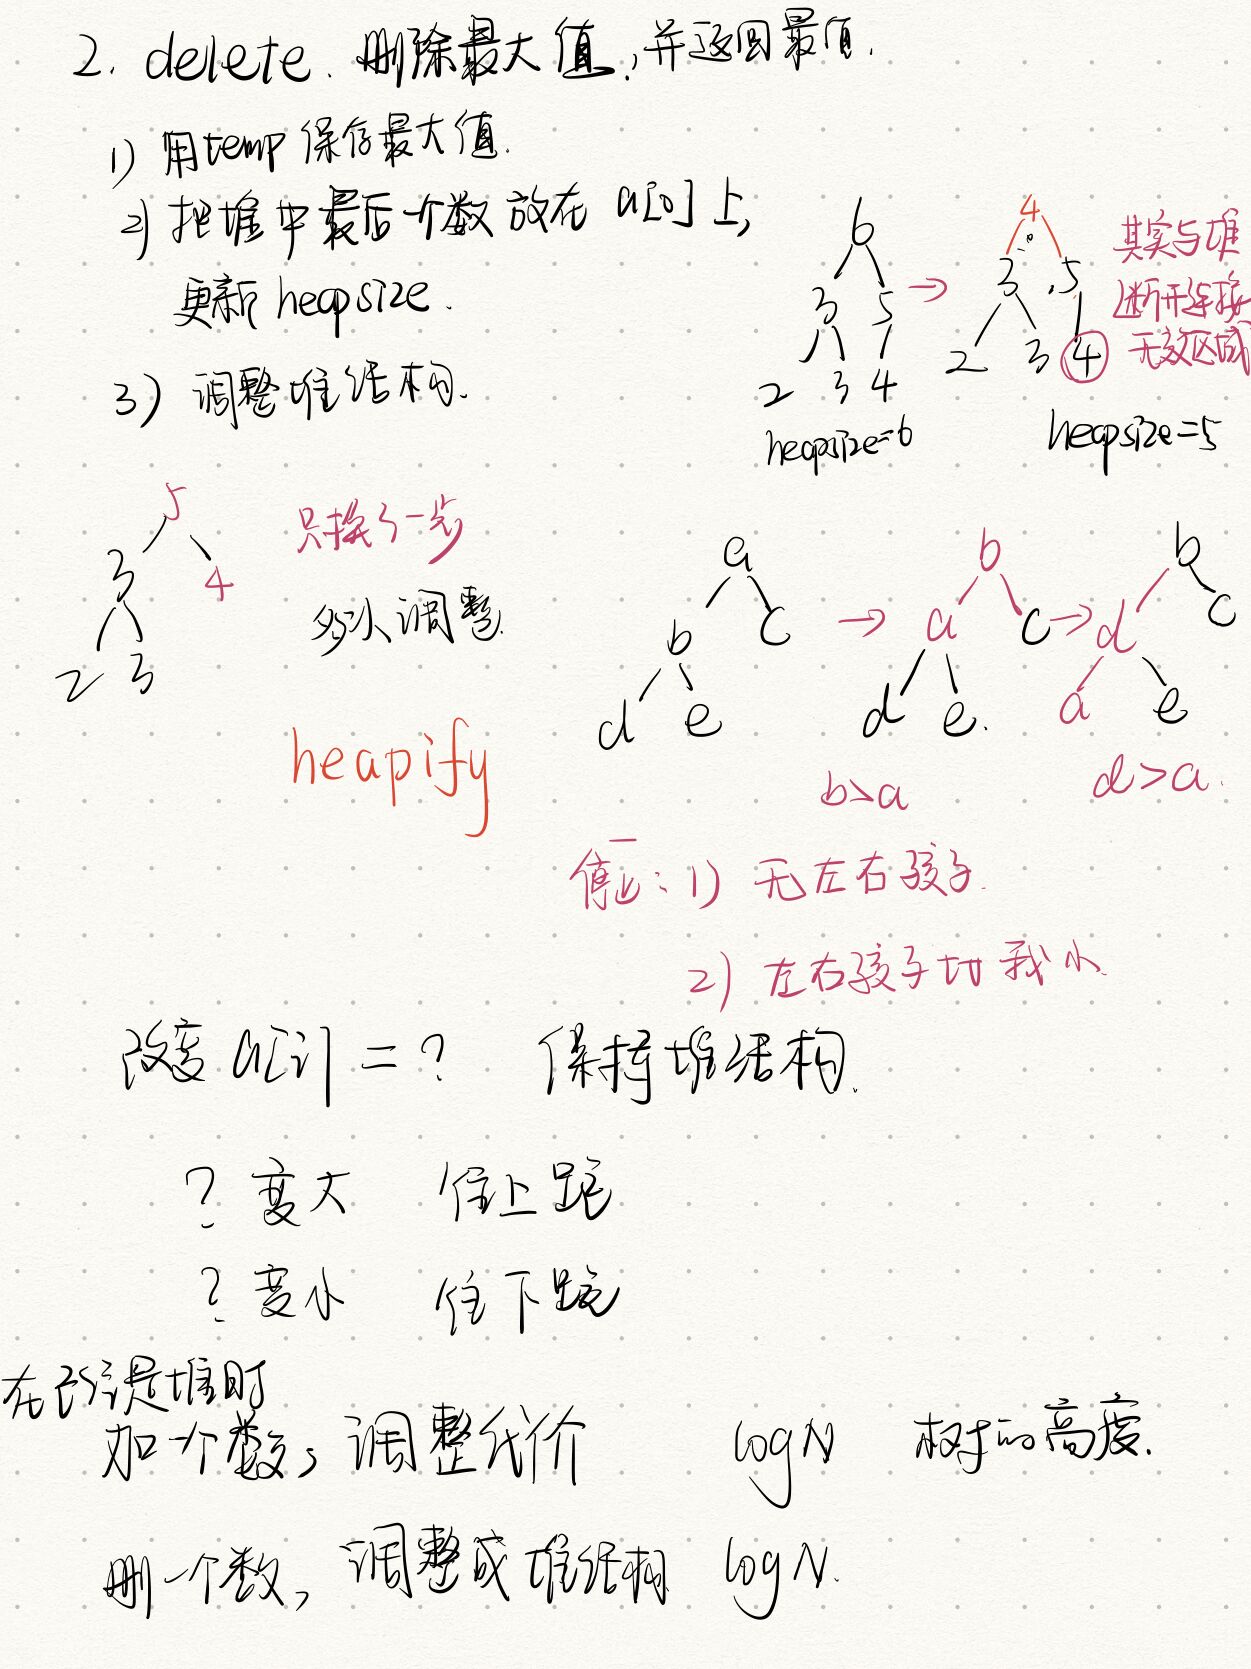 2. delete. 删除最大值,并返回最值.
1) 用temp保存最大值.
2) 把堆中最后一个数放在a[0]上,
更新heapsize.
3) 调整堆结构.
6
3 5
2 3 4
heapsize=6
→
4
0
3 5
2 3 4
heapsize=5
其实与堆
断开连接
无效区域
5
3 4
2 3
只换了一步
多次调整
heapify
a
b c
d e
→
b
a c
d e.
b>a
→
b
d c
a e
d>a.
停止: 1) 无左右孩子.
2) 左右孩子均我小.
改变a[i]=? 保持堆结构.
? 变大 往上跑
? 变小 往下跑
在已经是堆时
加一个数, 调整代价 logN 树的高度.
删一个数, 调整成堆结构 logN.